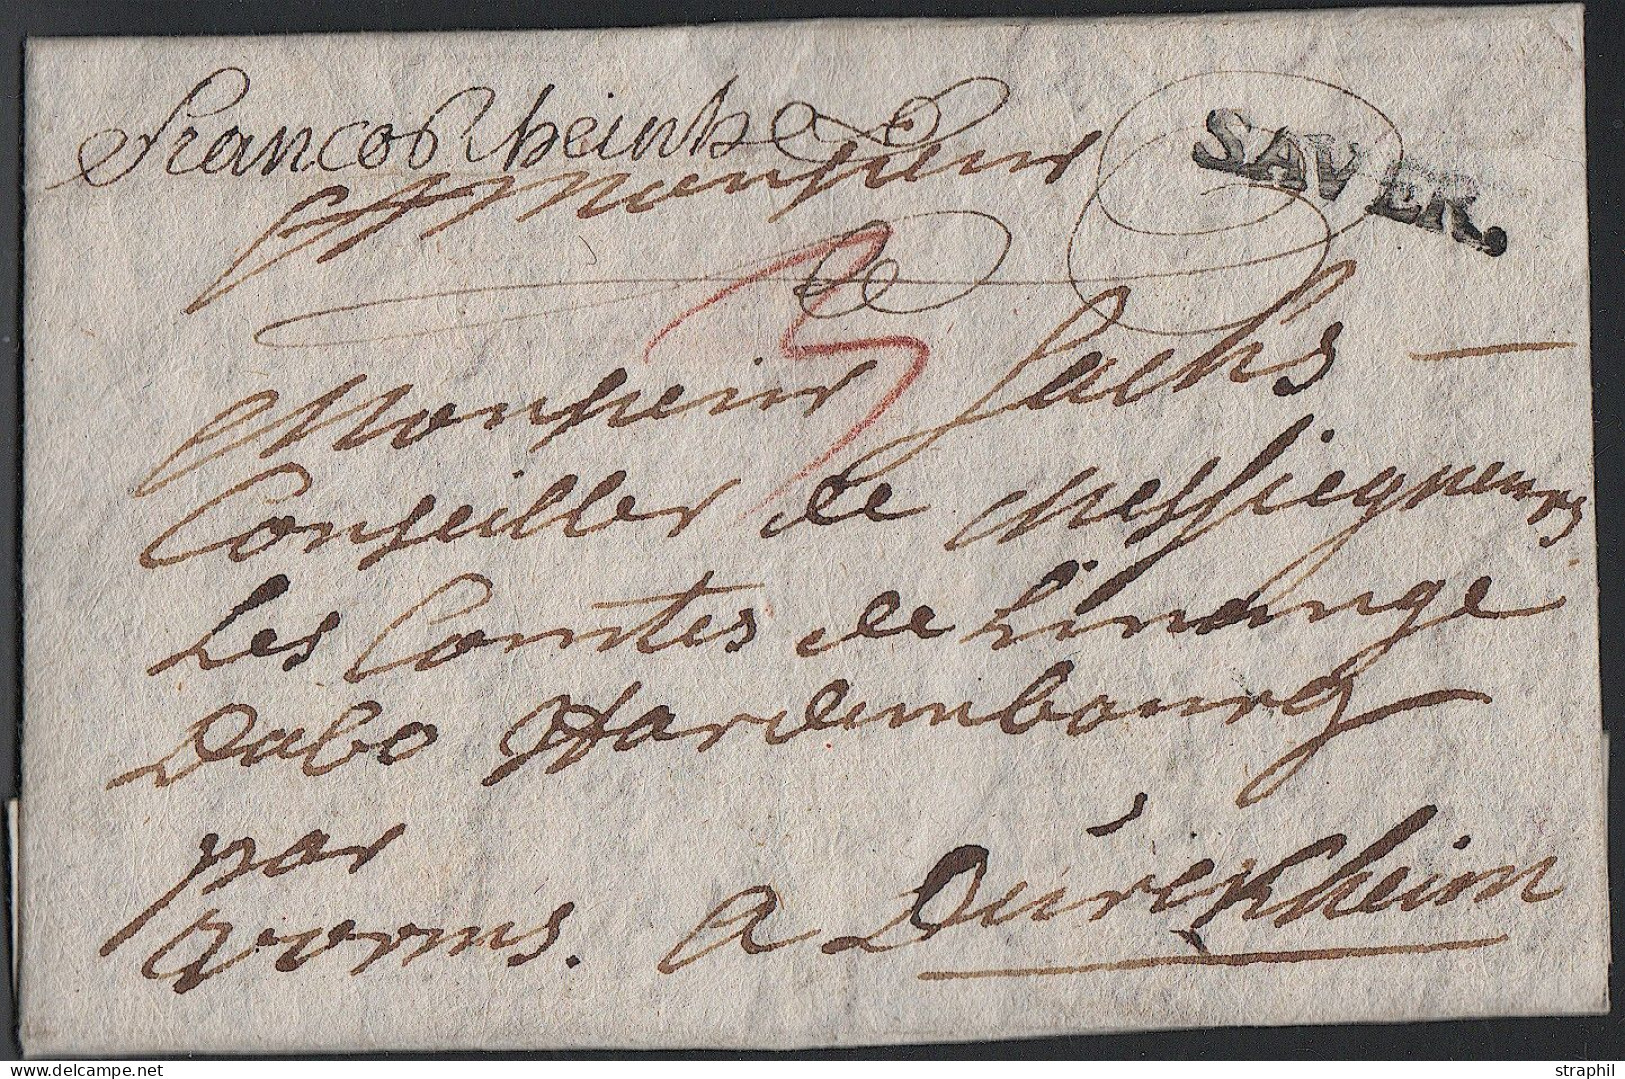 Franco Rheinhe
SAVER.
A Monsieur
Monsieur Sachs
Conseiller de Messiegneurs
Les Comtes de de Linange
Dabo Hardembourg
par
Worms. A Dürckheim
straphil